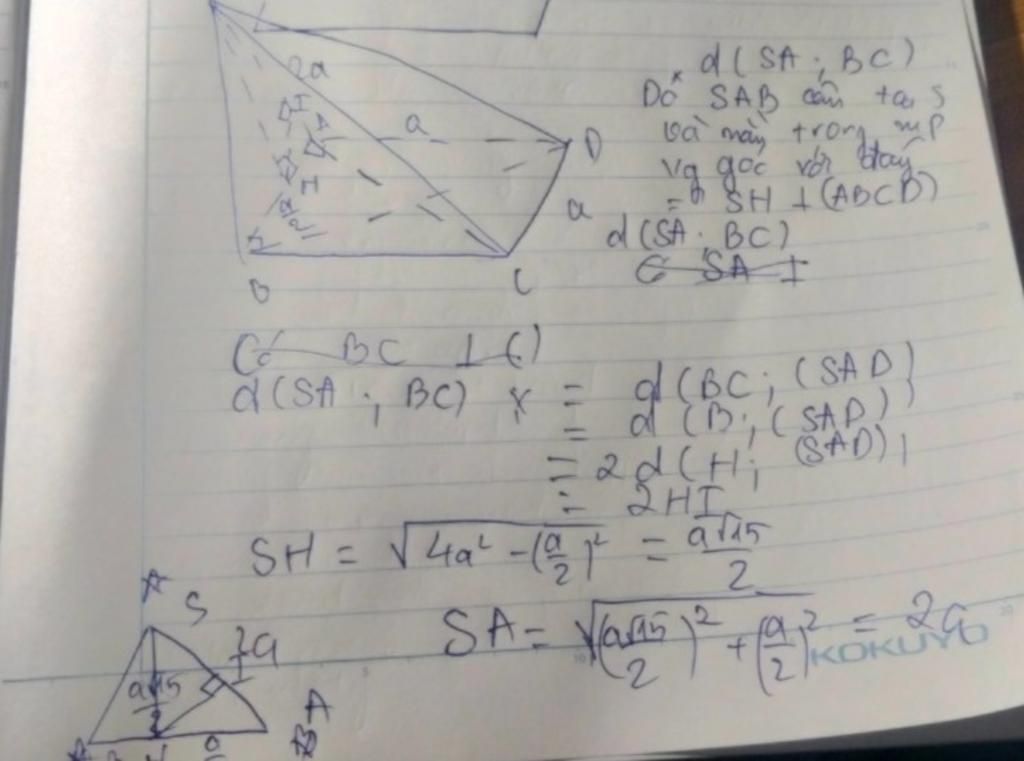 2a
I
A
a
D
H
a/2
a
B
C
d(SA; BC)
Do SAB cân tại S
và nằm trong mp
vg góc với đáy
= SH ⊥ (ABCD)
d(SA; BC)
SA ⊥
Có BC ⊥ ()
d(SA; BC) = d(BC; (SAD)
= d(B; (SAD)
= 2d(H; (SAD))
= 2HI
SH = √(4a² - (a/2)²) = a√15/2
SA = √((a√15/2)² + (a/2)²) = 2a
KOKUYO
S
2a
I
a√15/2
A
H
a